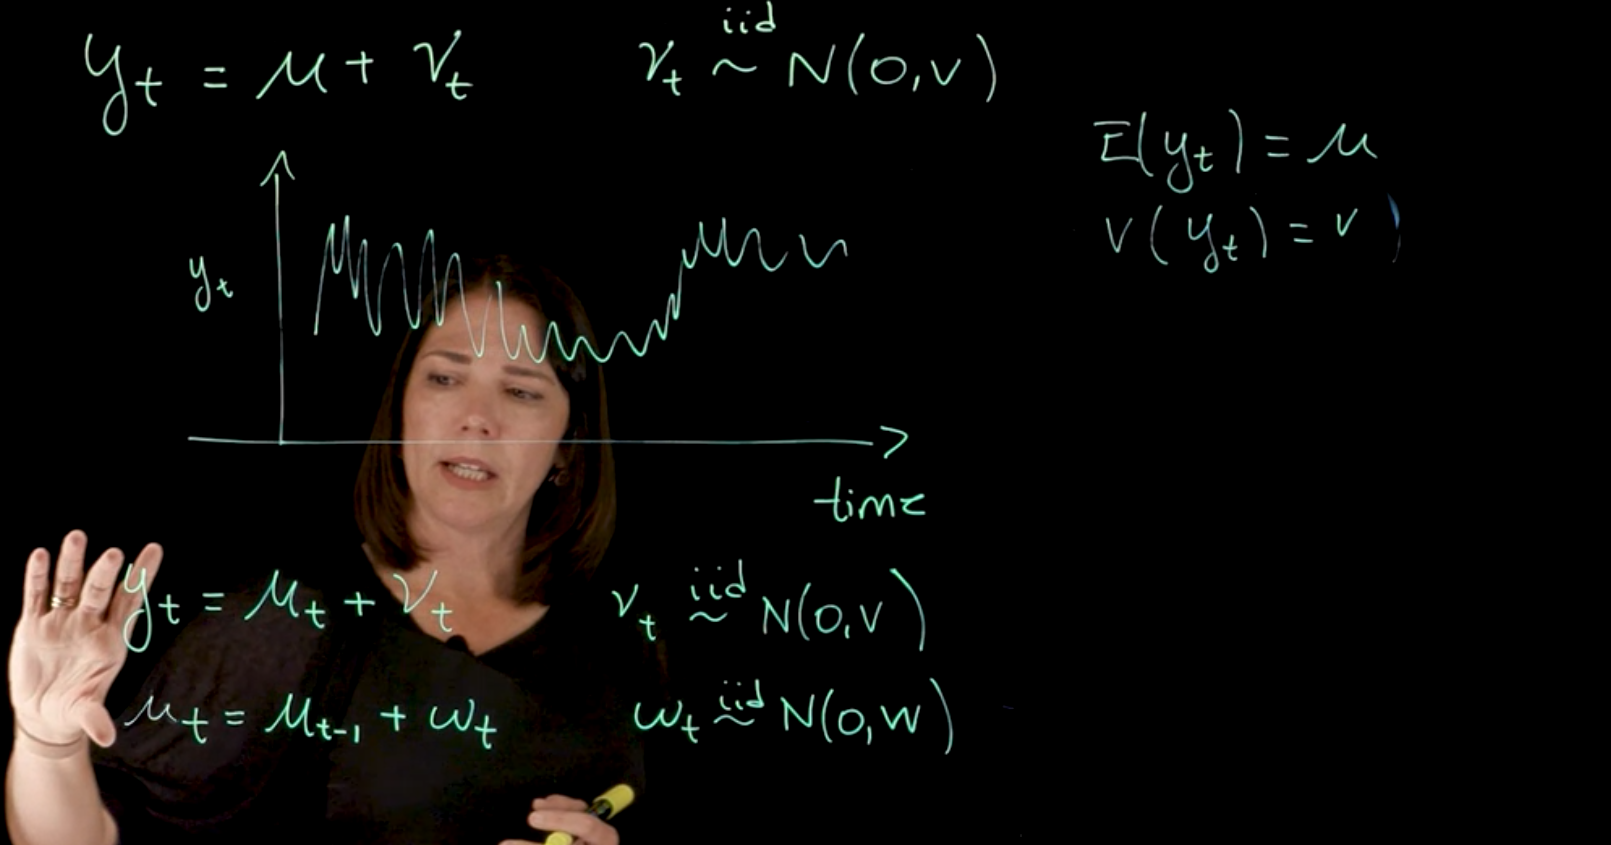 y_t = μ + ν_t    ν_t iid ~ N(0, v)
E(y_t) = μ
V(y_t) = v
y_t
time
y_t = μ_t + ν_t    ν_t iid ~ N(0, v)
μ_t = μ_{t-1} + ω_t    ω_t iid ~ N(0, w)